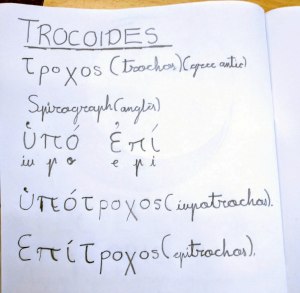 TROCOIDES
τροχος (trochos) (grec antic)
Spirograph (anglès)
ὑπό ἐπί
iu p o e p i
ὑπότροχος (iupotrochos).
επίτροχος (epitrochos).